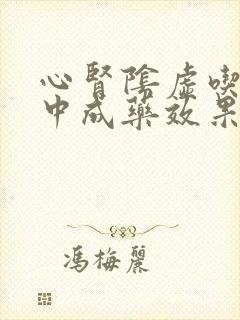 心腎陰虛喫
中成藥效果
馮梅麗